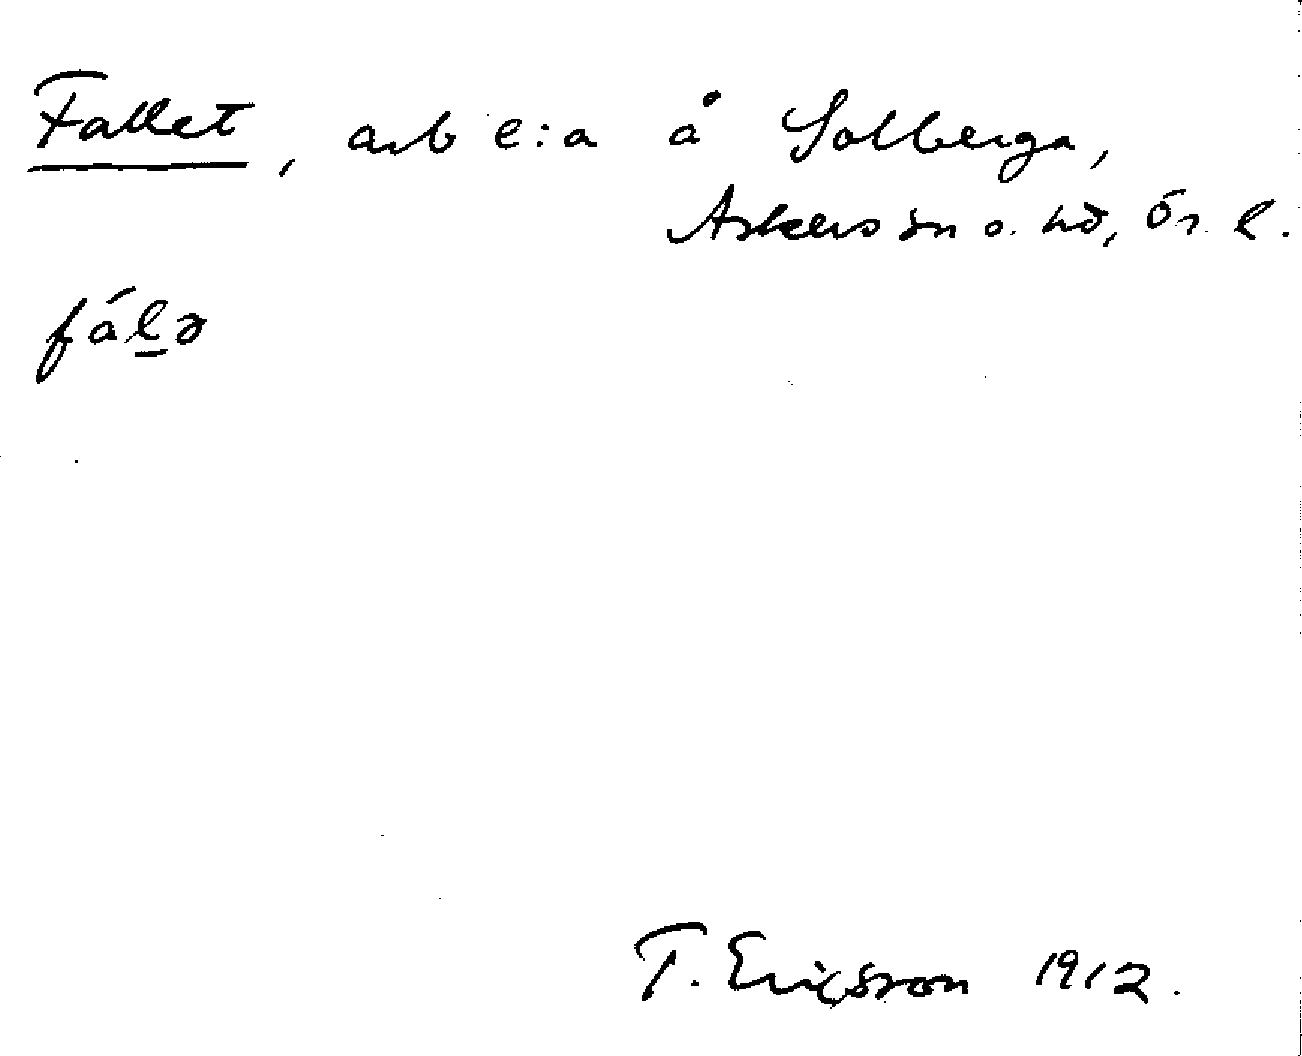 Fallet, arb e:a å Solberga,
Askers sn o. hd, Ör. l.
fál̲ə
T. Ericsson 1912.